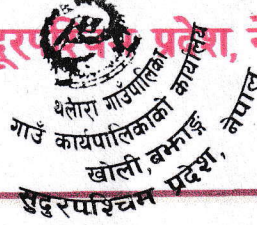 प्रदेश,
थलारा गाउँपालिका
गाउँ कार्यपालिकाको कार्यालय
खोली, बझाङ्ग
सुदुरपश्चिम प्रदेश, नेपाल